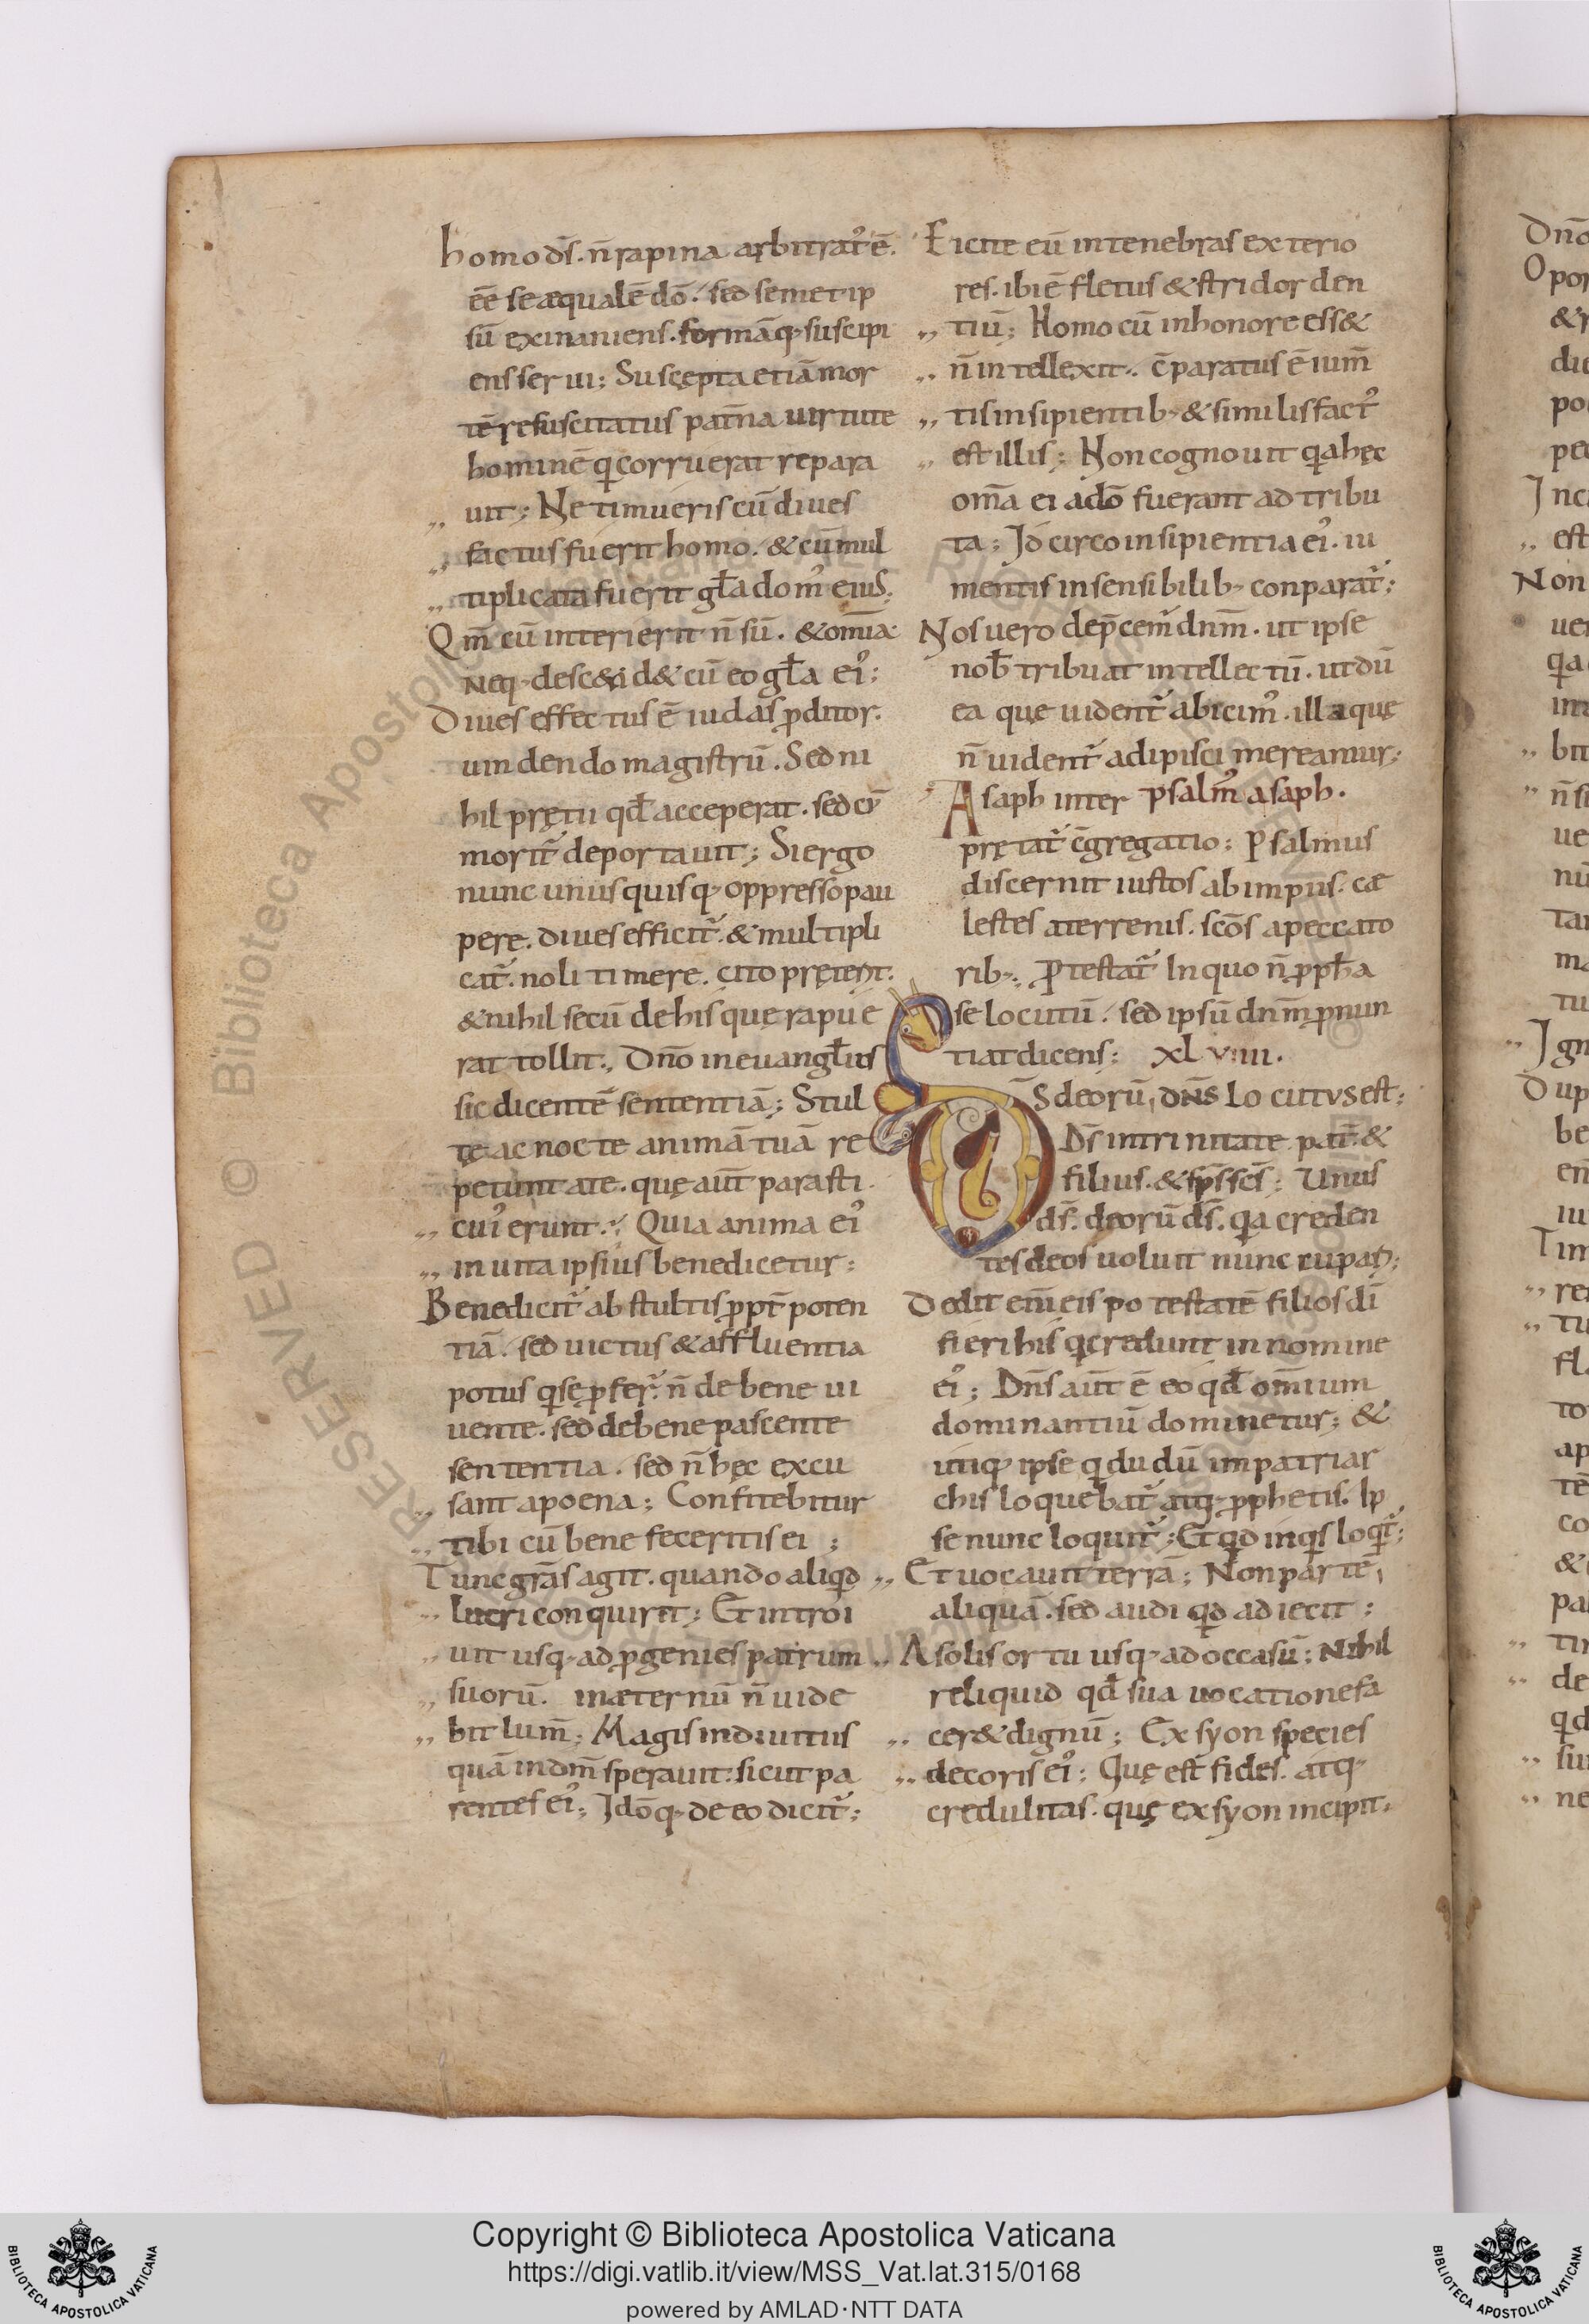 homo ds̄. n̄ rapina arbitrat᷑ ē.
eē se æqualē dō. sed semetip
sū exinaniens. formāq; suscipi
ens serui; Suscepta etiā mor
tē resuscitatus pat̄na uirtute
hominē qi corruerat repara
uit; Ne timueris cū diues
factus fuerit homo. & cū mul
tiplicata fuerit gl̄a domꝰ eius;
Qm̄ cū interierit n̄ sū. & omīa
neq; desc&id& cū eo gl̄a eiꝰ;
Diues effectus ē iudas ꝓditor.
uindendo magistrū. Sed ni
hil pretii qd̄ acceperat. sed
morit᷑ deportauit; Si ergo
nunc unusquisq; oppresso pau
perę. diues efficit᷑. & multipli
cat᷑. noli timere. cito pręteint.
& nihil secū de his que rapue
rat tollit; Dn̄o in euangl̄ius
sic dicentē sententiā; Stul
tę ac nocte animā tuā re
petunt a te. quę aūt parasti.
cuiꝰ erunt; Quia anima eiꝰ
in uita ipsius benedicetur;
Benedicit᷑ ab stultis ꝓpt̄ poten
tiā. sed uictus & affluentia
potus qi sę ꝓfer᷑. n̄ de bene ui
uente. sed de bene pascente
sententia. sed n̄ hęc excu
sant a poena; Confitebitur
tibi cū bene feceritis ei;
Tunc grās agit. quando aliqid
lucri conquirit; Et introi
uit usq; ad ꝓgenies patrum
suorū. in æternū n̄ uide
bit lum̄; Magis in diuitiis
quā in dnm̄ sperauit: sicut pa
rentes eiꝰ; Idōq; de eo dicit᷑;
Eicite eū in tenebras exterio
res. ibi ē fletus & stridor den
tiū; Homo cū in honore ess&
n̄ intellexit. c̄paratus ē ium̄
tis insipientib; & similis fact᷑
est illis; Non cognouit qia hęc
om̄a ei a dō fuerant ad tribu
ta; Idcirco insipientia eiꝰ. iu
mentis insensibilib; conparat᷑;
Nos uero dep̄cem᷑ dnm̄. ut ipse
nob̄ tribuat intellectū. ut dū
ea quę uident᷑ abicimꝰ. illa quę
n̄ uident᷑ adipisci mereamur;
Asaph inter psalmꝰ asaph.
pretat᷑ c̄gregatio; Psalmus
discernit iustos ab impiis. cæ
lestes a terrenis. scōs a peccato
rib;. ꝓtestat᷑ In quo n̄ ꝓph̄a
se locutū. sed ipsū dnm̄ ꝓnun
tiat dicens; XLVIIII.
Ds̄ deorū, dn̄s locutus est;
Ds̄ in trinitate pat̄ &
filius. & sp̄s sc̄s; Unus
ds̄. deorū ds̄. qia creden
tes deos uoluit nuncupari;
Dedit em̄ eis potestatē filios dī
fieri his qi credunt in nomine
eiꝰ; Dn̄s aūt ē eo qd̄ omīum
dominantiū dominetur; &
utiq; ipse qi dudū in patriar
chis loquebat᷑ atq; ꝓphetis. Ip
se nunc loquit᷑; Et qid inqis loqit᷑;
Et uocauit terrā; Non partē
aliquā. sed audi qid adiecit;
A solis ortu usq; ad occasū; Nihil
reliquid qd̄ sua uocatione fa
cer& dignū; Ex syon species
decoris eiꝰ; Quę est fides. atq;
credulitas. quę ex syon incipit.
Dn̄o
Opor
&
du
po
pec
Inc
est
Non
uer
qia
im
bit
n̄ si
ue
nū
tan
ma
tu
Ign
Dup
be
en̄
iu
Tim
re
tu
fla
to
ap
tē
co
&
pa
tin
de
qd
sui
ne
Copyright © Biblioteca Apostolica Vaticana
https://digi.vatlib.it/view/MSS_Vat.lat.315/0168
powered by AMLAD·NTT DATA
BIBLIOTECA APOSTOLICA VATICANA
BIBLIOTECA APOSTOLICA VATICANA